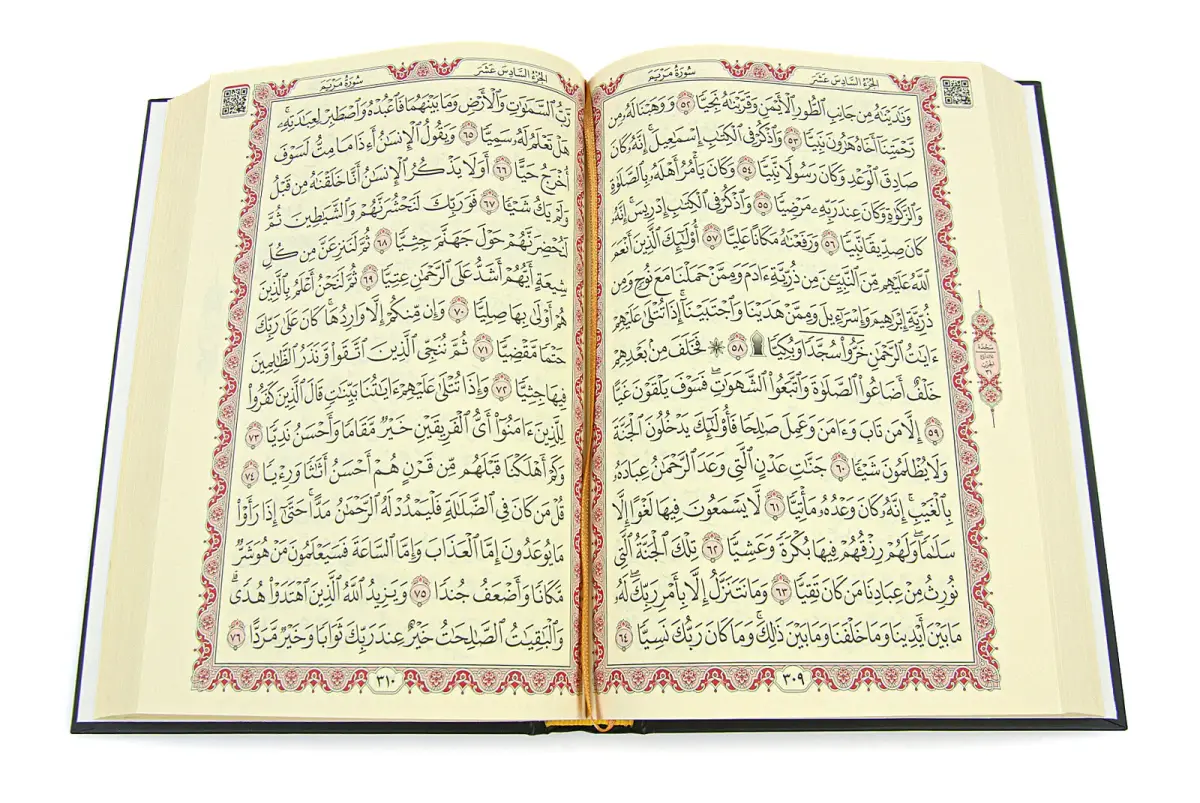 الجُزْءُ السَّادِسَ عَشَرَ سُورَةُ مَرْيَمَ
وَنَٰدَيْنَٰهُ مِن جَانِبِ ٱلطُّورِ ٱلْأَيْمَنِ وَقَرَّبْنَٰهُ نَجِيًّا ٥٢ وَوَهَبْنَا لَهُۥ مِن
رَّحْمَتِنَآ أَخَاهُ هَٰرُونَ نَبِيًّا ٥٣ وَٱذْكُرْ فِى ٱلْكِتَٰبِ إِسْمَٰعِيلَ ۚ إِنَّهُۥ كَانَ
صَادِقَ ٱلْوَعْدِ وَكَانَ رَسُولًا نَّبِيًّا ٥٤ وَكَانَ يَأْمُرُ أَهْلَهُۥ بِٱلصَّلَوٰةِ
وَٱلزَّكَوٰةِ وَكَانَ عِندَ رَبِّهِۦ مَرْضِيًّا ٥٥ وَٱذْكُرْ فِى ٱلْكِتَٰبِ إِدْرِيسَ ۚ إِنَّهُۥ
كَانَ صِدِّيقًا نَّبِيًّا ٥٦ وَرَفَعْنَٰهُ مَكَانًا عَلِيًّا ٥٧ أُو۟لَٰٓئِكَ ٱلَّذِينَ أَنْعَمَ
ٱللَّهُ عَلَيْهِم مِّنَ ٱلنَّبِيِّـۧنَ مِن ذُرِّيَّةِ ءَادَمَ وَمِمَّنْ حَمَلْنَا مَعَ نُوحٍ وَمِن
ذُرِّيَّةِ إِبْرَٰهِيمَ وَإِسْرَٰٓءِيلَ وَمِمَّنْ هَدَيْنَا وَٱجْتَبَيْنَآ ۚ إِذَا تُتْلَىٰ عَلَيْهِمْ
ءَايَٰتُ ٱلرَّحْمَٰنِ خَرُّوا۟ سُجَّدًا وَبُكِيًّا ۩ ٥٨ ۞ فَخَلَفَ مِنۢ بَعْدِهِمْ
خَلْفٌ أَضَاعُوا۟ ٱلصَّلَوٰةَ وَٱتَّبَعُوا۟ ٱلشَّهَوَٰتِ ۖ فَسَوْفَ يَلْقَوْنَ غَيًّا
٥٩ إِلَّا مَن تَابَ وَءَامَنَ وَعَمِلَ صَٰلِحًا فَأُو۟لَٰٓئِكَ يَدْخُلُونَ ٱلْجَنَّةَ
وَلَا يُظْلَمُونَ شَيْـًٔا ٦٠ جَنَّٰتِ عَدْنٍ ٱلَّتِى وَعَدَ ٱلرَّحْمَٰنُ عِبَادَهُۥ
بِٱلْغَيْبِ ۚ إِنَّهُۥ كَانَ وَعْدُهُۥ مَأْتِيًّا ٦١ لَّا يَسْمَعُونَ فِيهَا لَغْوًا إِلَّا
سَلَٰمًا ۖ وَلَهُمْ رِزْقُهُمْ فِيهَا بُكْرَةً وَعَشِيًّا ٦٢ تِلْكَ ٱلْجَنَّةُ ٱلَّتِى
نُورِثُ مِنْ عِبَادِنَا مَن كَانَ تَقِيًّا ٦٣ وَمَا نَتَنَزَّلُ إِلَّا بِأَمْرِ رَبِّكَ ۖ لَهُۥ
مَا بَيْنَ أَيْدِينَا وَمَا خَلْفَنَا وَمَا بَيْنَ ذَٰلِكَ ۚ وَمَا كَانَ رَبُّكَ نَسِيًّا ٦٤
٣٠٩
سَجْدَة
الحِزْب
٣١
الجُزْءُ السَّادِسَ عَشَرَ سُورَةُ مَرْيَمَ
رَّبُّ ٱلسَّمَٰوَٰتِ وَٱلْأَرْضِ وَمَا بَيْنَهُمَا فَٱعْبُدْهُ وَٱصْطَبِرْ لِعِبَٰدَتِهِۦ ۚ
هَلْ تَعْلَمُ لَهُۥ سَمِيًّا ٦٥ وَيَقُولُ ٱلْإِنسَٰنُ أَءِذَا مَا مِتُّ لَسَوْفَ
أُخْرَجُ حَيًّا ٦٦ أَوَلَا يَذْكُرُ ٱلْإِنسَٰنُ أَنَّا خَلَقْنَٰهُ مِن قَبْلُ
وَلَمْ يَكُ شَيْـًٔا ٦٧ فَوَرَبِّكَ لَنَحْشُرَنَّهُمْ وَٱلشَّيَٰطِينَ ثُمَّ
لَنُحْضِرَنَّهُمْ حَوْلَ جَهَنَّمَ جِثِيًّا ٦٨ ثُمَّ لَنَنزِعَنَّ مِن كُلِّ
شِيعَةٍ أَيُّهُمْ أَشَدُّ عَلَى ٱلرَّحْمَٰنِ عِتِيًّا ٦٩ ثُمَّ لَنَحْنُ أَعْلَمُ بِٱلَّذِينَ
هُمْ أَوْلَىٰ بِهَا صِلِيًّا ٧٠ وَإِن مِّنكُمْ إِلَّا وَارِدُهَا ۚ كَانَ عَلَىٰ رَبِّكَ
حَتْمًا مَّقْضِيًّا ٧١ ثُمَّ نُنَجِّى ٱلَّذِينَ ٱتَّقَوا۟ وَّنَذَرُ ٱلظَّٰلِمِينَ
فِيهَا جِثِيًّا ٧٢ وَإِذَا تُتْلَىٰ عَلَيْهِمْ ءَايَٰتُنَا بَيِّنَٰتٍ قَالَ ٱلَّذِينَ كَفَرُوا۟
لِلَّذِينَ ءَامَنُوٓا۟ أَىُّ ٱلْفَرِيقَيْنِ خَيْرٌ مَّقَامًا وَأَحْسَنُ نَدِيًّا ٧٣
وَكَمْ أَهْلَكْنَا قَبْلَهُم مِّن قَرْنٍ هُمْ أَحْسَنُ أَثَٰثًا وَرِءْيًا ٧٤
قُلْ مَن كَانَ فِى ٱلضَّلَٰلَةِ فَلْيَمْدُدْ لَهُ ٱلرَّحْمَٰنُ مَدًّا ۚ حَتَّىٰٓ إِذَا رَأَوْا۟
مَا يُوعَدُونَ إِمَّا ٱلْعَذَابَ وَإِمَّا ٱلسَّاعَةَ فَسَيَعْلَمُونَ مَنْ هُوَ شَرٌّ
مَّكَانًا وَأَضْعَفُ جُندًا ٧٥ وَيَزِيدُ ٱللَّهُ ٱلَّذِينَ ٱهْتَدَوْا۟ هُدًى ۗ
وَٱلْبَٰقِيَٰتُ ٱلصَّٰلِحَٰتُ خَيْرٌ عِندَ رَبِّكَ ثَوَابًا وَخَيْرٌ مَّرَدًّا ٧٦
٣١٠